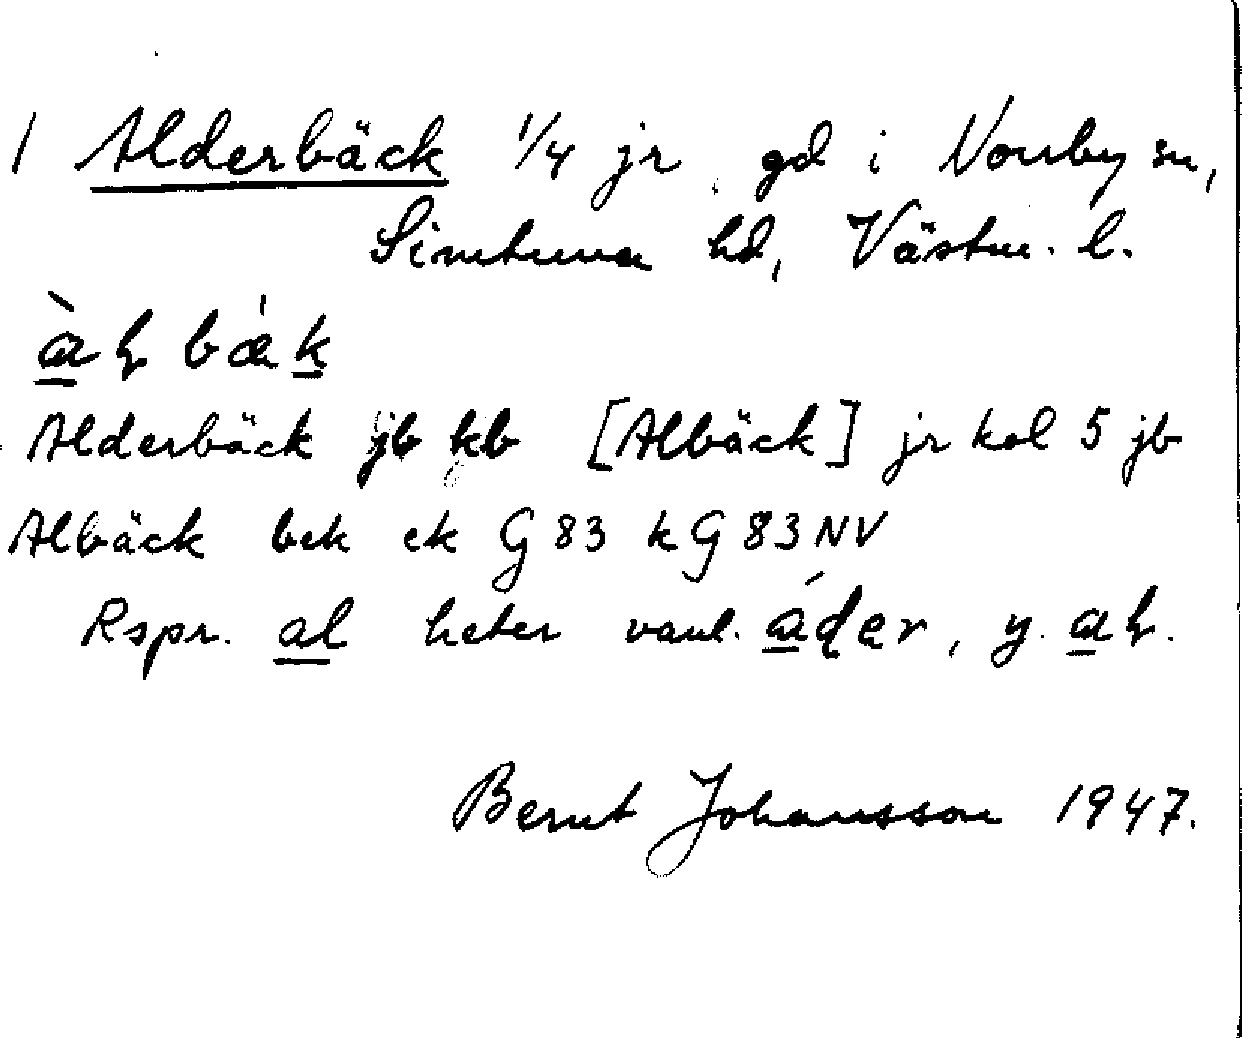 1 Alderbäck 1/4 jr, gd i Norrby sn,
Simtuna hd, Västm. l.
Alderbäck jb kb [Albäck] jr kol 5 jb
Albäck bek ek G 83 k G 83 NV
Rspr. al heter vanl. , y.
Bernt Johansson 1947.